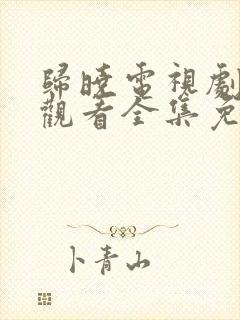 歸曉電視劇
觀看全集免
卜青山